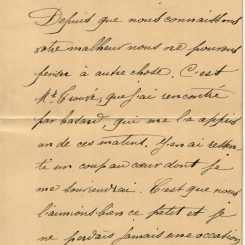 Depuis que nous connaissons
votre malheur nous ne pouvons
penser à autre chose. C'est
que j'ai rencontré
par hasard, qui me l'a appris
un de ces matins. J'en ai ressen-
ti un coup au cœur dont je
me souviendrai. C'est que nous
l'aimions bien ce petit et je
ne perdais jamais une occasion